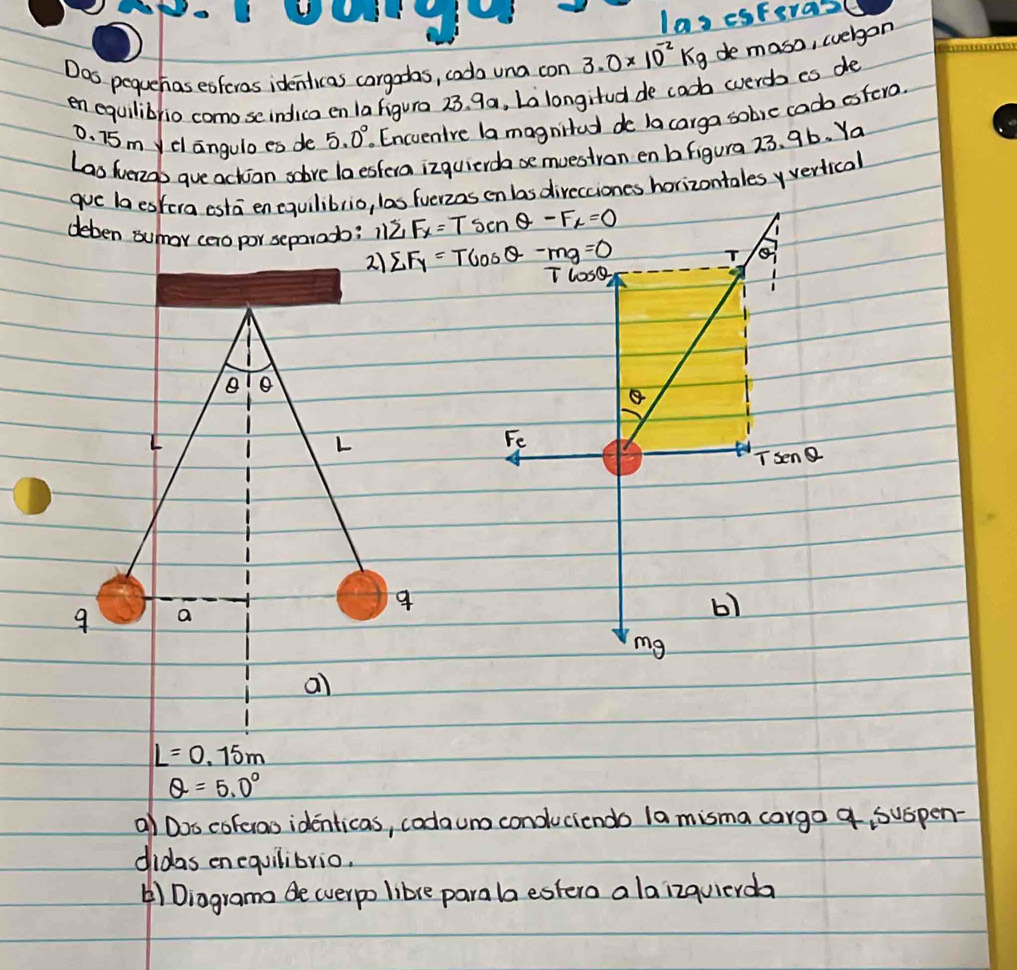 las esferas
Dos pequeñas esferas idénticas cargadas, cada una con 3.0×10⁻² Kg de masa, cuelgan
en equilibrio como se indica en la figura 23.9a. La longitud de cada cuerda es de
0.15 m y el ángulo es de 5.0°. Encuentre la magnitud de la carga sobre cada esfera.
Las fuerzas que actúan sobre la esfera izquierda se muestran en la figura 23.9b. Ya
que la esfera está en equilibrio, las fuerzas en las direcciones horizontales y vertical
deben sumar cero por separado: 1) Σ Fx = T Sen θ - Fe = 0
2) ΣFy = T Cos θ - mg = 0
T Cos θ
T θ
θ θ
θ
L L
Fe
T sen θ
q a q
b)
mg
a)
L = 0.15m
θ = 5.0°
a) Dos esferas idénticas, cada una conduciendo la misma carga q, suspen-
didas en equilibrio.
b) Diagrama de cuerpo libre para la esfera a la izquierda